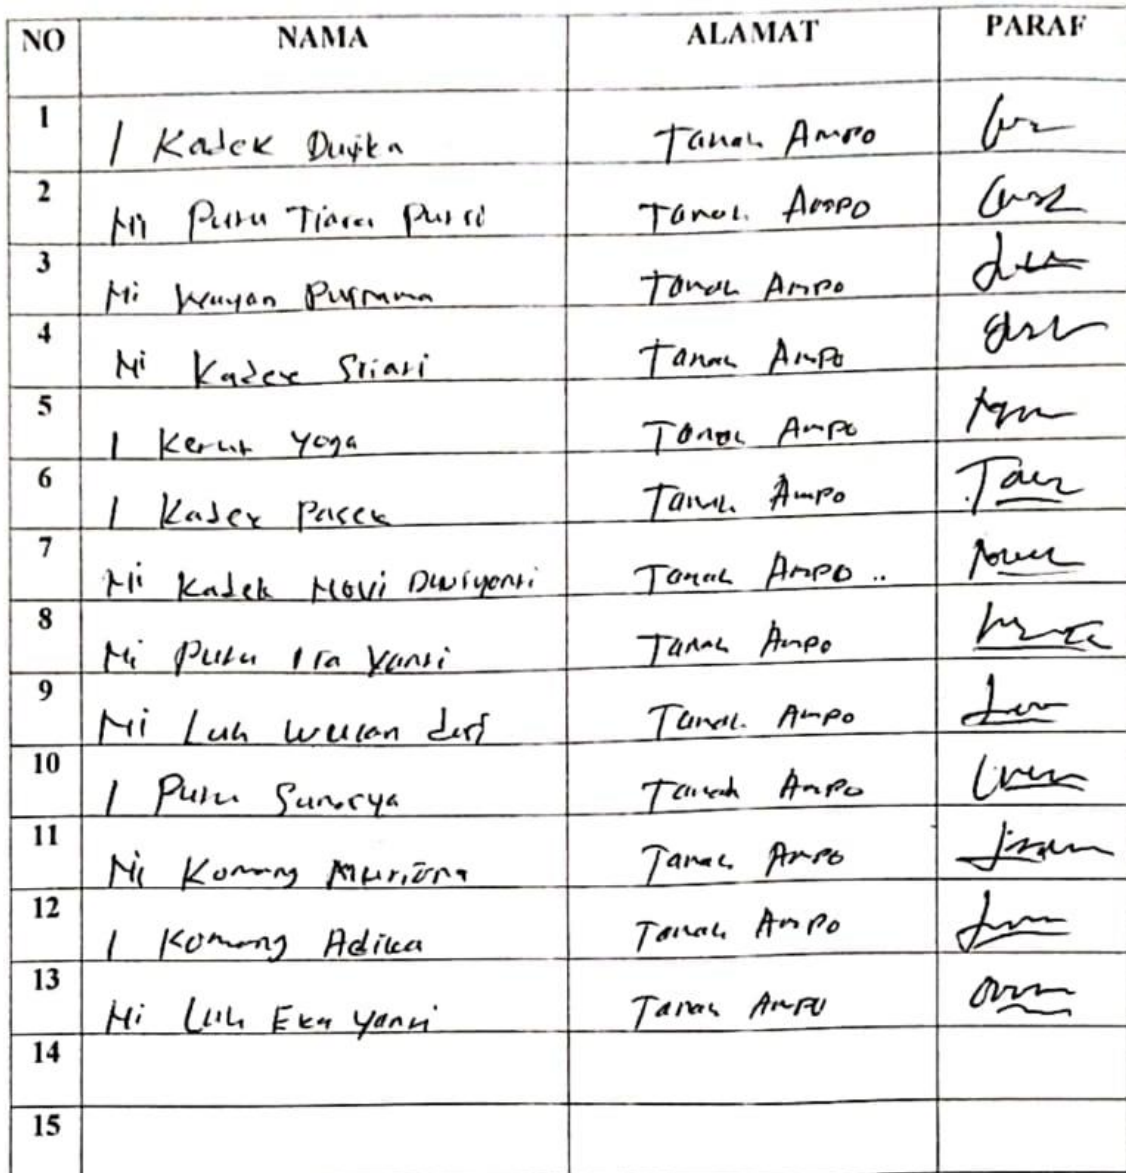 NO NAMA ALAMAT PARAF
1 I Kadek Duyika Tanah Ampo
2 Ni Putu Tiara Putri Tanah Ampo
3 Ni Wayan Tanah Ampo
4 Ni Kadek Sriasi Tanah Ampo
5 I Ketut Yoga Tanah Ampo
6 I Kadek Pasek Tanah Ampo
7 Ni Kadek Novi Dwiyanti Tanah Ampo ..
8 Ni Putu Ira Yanti Tanah Ampo
9 Ni Luh Wulan Tanah Ampo
10 I Putu Sunarya Tanah Ampo
11 Ni Komang Tanah Ampo
12 I Komang Adika Tanah Ampo
13 Ni Luh Eka Yanti Tanah Ampo
14
15